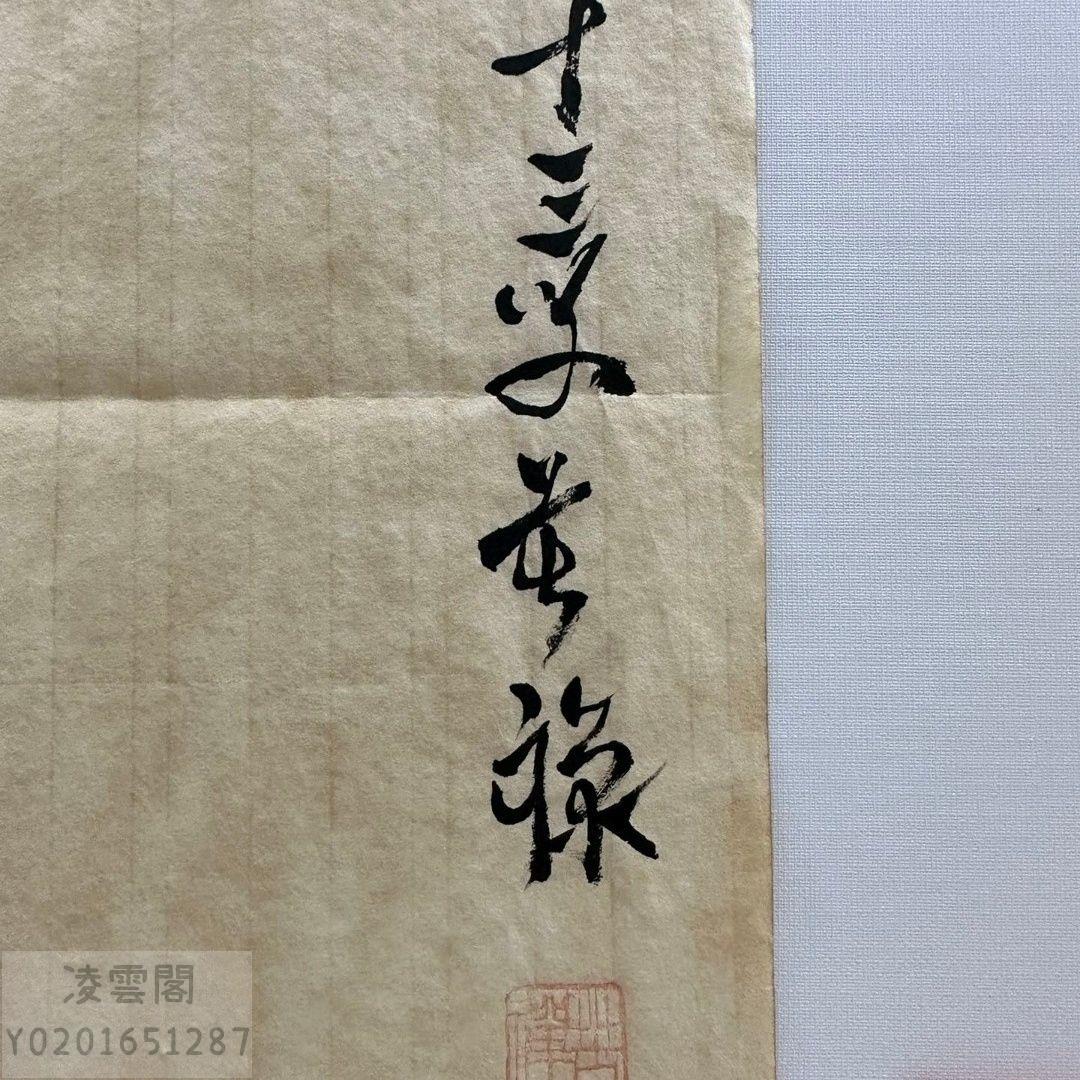 十三叟董祿
凌雲閣
Y0201651287